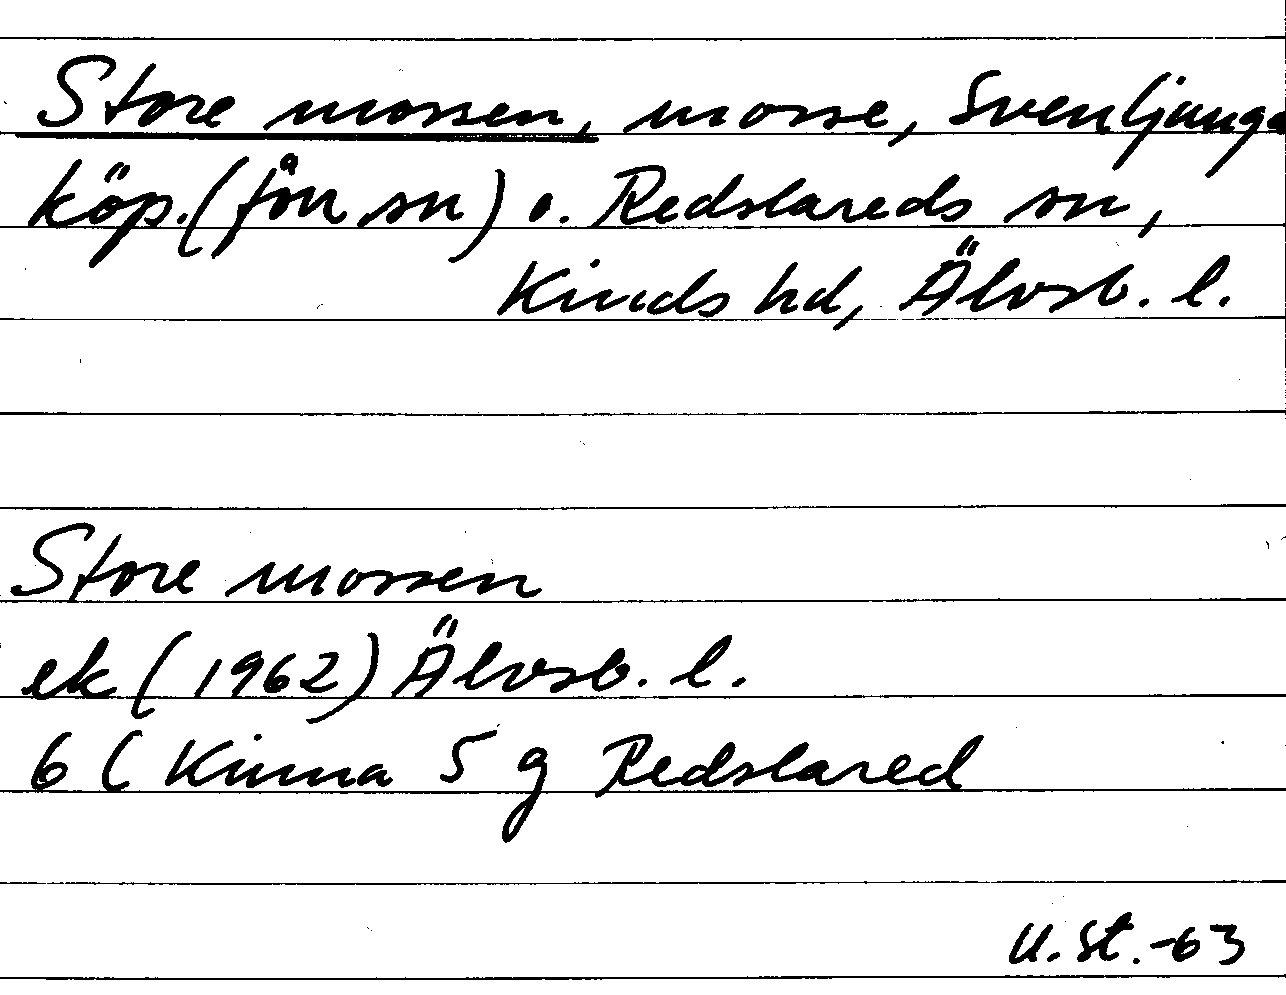 Store mossen, mosse, Svenljunga
köp. (fön sn) o. Redslareds sn,
Kinds hd, Älvsb. l.
Store mossen
ek (1962) Älvsb. l.
6 C Kinna 5 g Redslared
U. St. -63